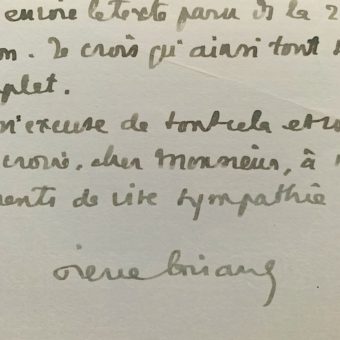 encore le texte paru ds la 2
on. Je crois qu'ainsi tout s
plet.
m'excuse de tout cela et vo
crois, cher Monsieur, à m
ments de vive sympathie